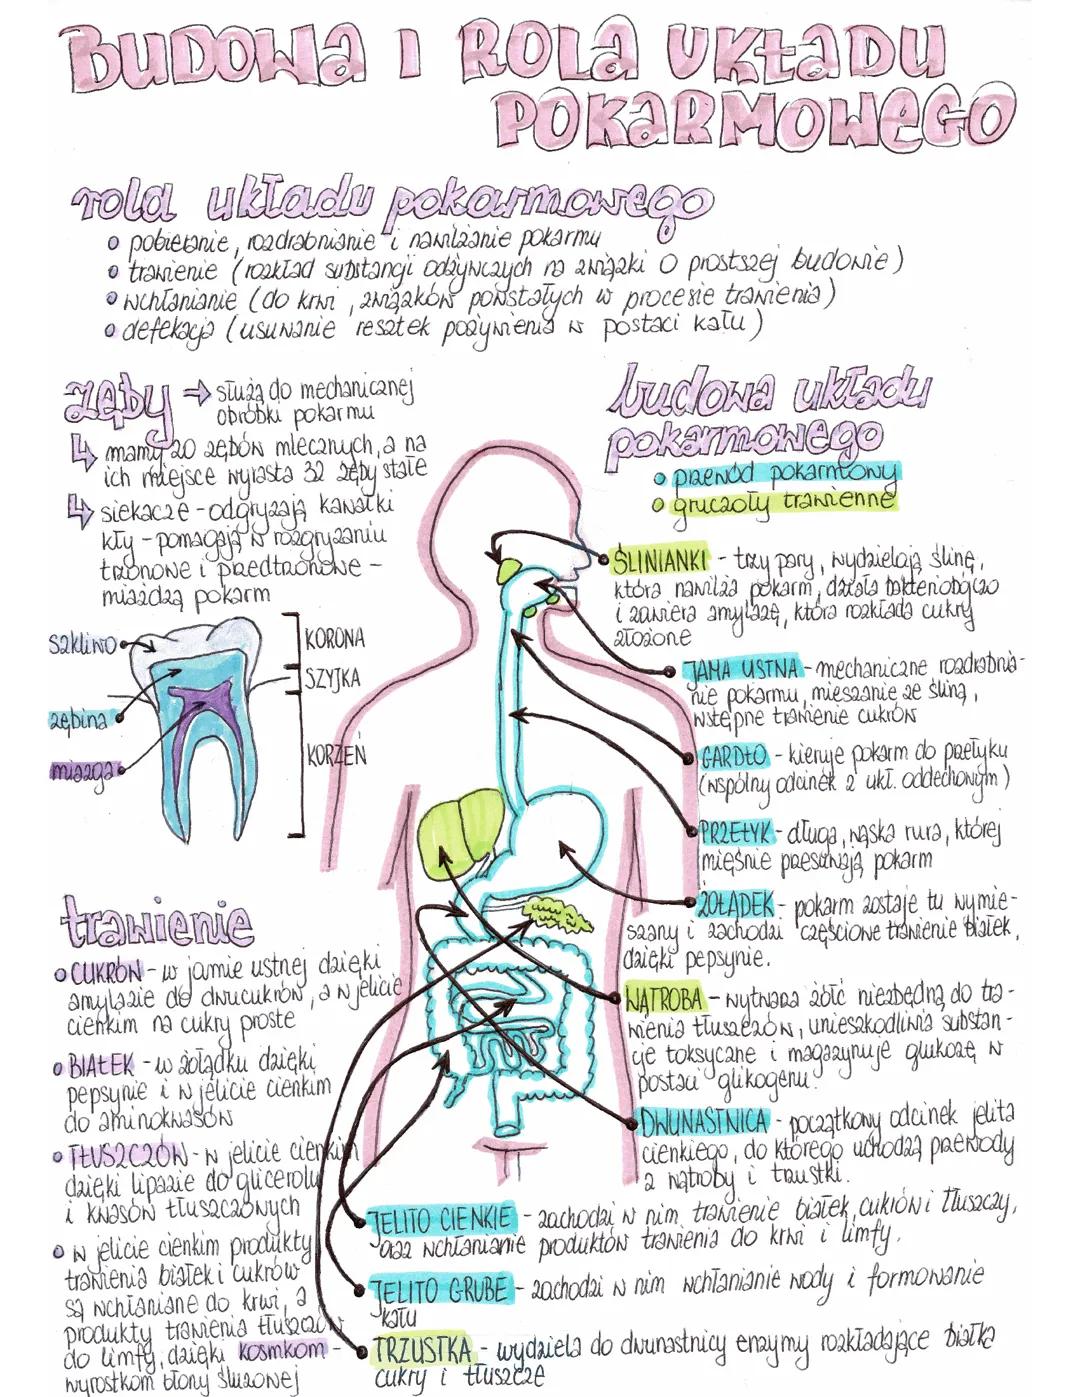 BUDOWA I ROLA UKŁADU
POKARMOWEGO
rola układu pokarmowego
o pobieranie, rozdrabnianie i nawilżanie pokarmu
o trawienie (rozkład substancji odżywczych na związki o prostszej budowie)
o wchłanianie (do krwi, związków powstałych w procesie trawienia)
o defekacja (usuwanie resztek pożywienia w postaci kału)
zęby → służą do mechanicznej
obróbki pokarmu
↳ mamy 20 zębów mlecznych, a na
ich miejsce wyrasta 32 zęby stałe
↳ siekacze - odgryzają kawałki
kły - pomagają w rozgryzaniu
trzonowe i przedtrzonowe -
miażdżą pokarm
szkliwo
zębina
miazga
KORONA
SZYJKA
KORZEŃ
budowa układu
pokarmowego
o przewód pokarmowy
o gruczoły trawienne
ŚLINIANKI - trzy pary, wydzielają ślinę,
która nawilża pokarm, działa bakteriobójczo
i zawiera amylazę, która rozkłada cukry
złożone
JAMA USTNA - mechaniczne rozdrabnia-
nie pokarmu, mieszanie ze śliną,
wstępne trawienie cukrów
GARDŁO - kieruje pokarm do przełyku
(wspólny odcinek z ukł. oddechowym)
PRZEŁYK - długa, wąska rura, której
mięśnie przesuwają pokarm
ŻOŁĄDEK - pokarm zostaje tu wymie-
szany i zachodzi częściowe trawienie białek,
dzięki pepsynie.
WĄTROBA - wytwarza żółć niezbędną do tra-
wienia tłuszczów, unieszkodliwia substan-
cje toksyczne i magazynuje glukozę w
postaci glikogenu.
DWUNASTNICA - początkowy odcinek jelita
cienkiego, do którego uchodzą przewody
z wątroby i trzustki.
JELITO CIENKIE - zachodzi w nim trawienie białek, cukrów i tłuszczy,
oraz wchłanianie produktów trawienia do krwi i limfy.
JELITO GRUBE - zachodzi w nim wchłanianie wody i formowanie
kału
TRZUSTKA - wydziela do dwunastnicy enzymy rozkładające białka
cukry i tłuszcze
trawienie
o CUKRÓW - w jamie ustnej dzięki
amylazie do dwucukrów, a w jelicie
cienkim na cukry proste
o BIAŁEK - w żołądku dzięki
pepsynie i w jelicie cienkim
do aminokwasów
o TŁUSZCZÓW - w jelicie cienkim
dzięki lipazie do glicerolu
i kwasów tłuszczowych
o w jelicie cienkim produkty
trawienia białek i cukrów
są wchłaniane do krwi, a
produkty trawienia tłuszczów
do limfy, dzięki kosmkom -
wyrostkom błony śluzowej